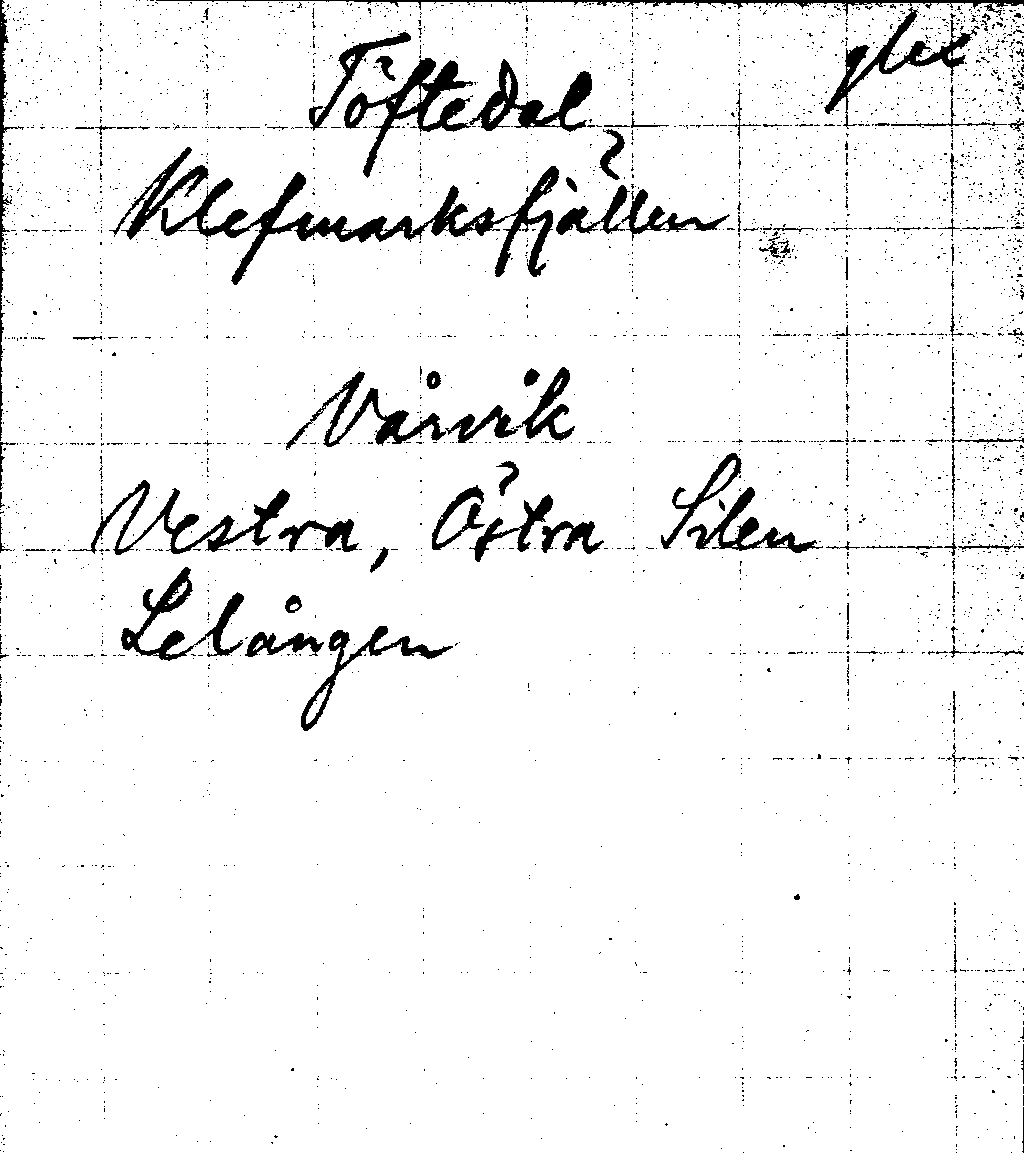 Töftedal
Klefmarksfjällen
Vårvik
Vestra, Östra Silen
Lelången